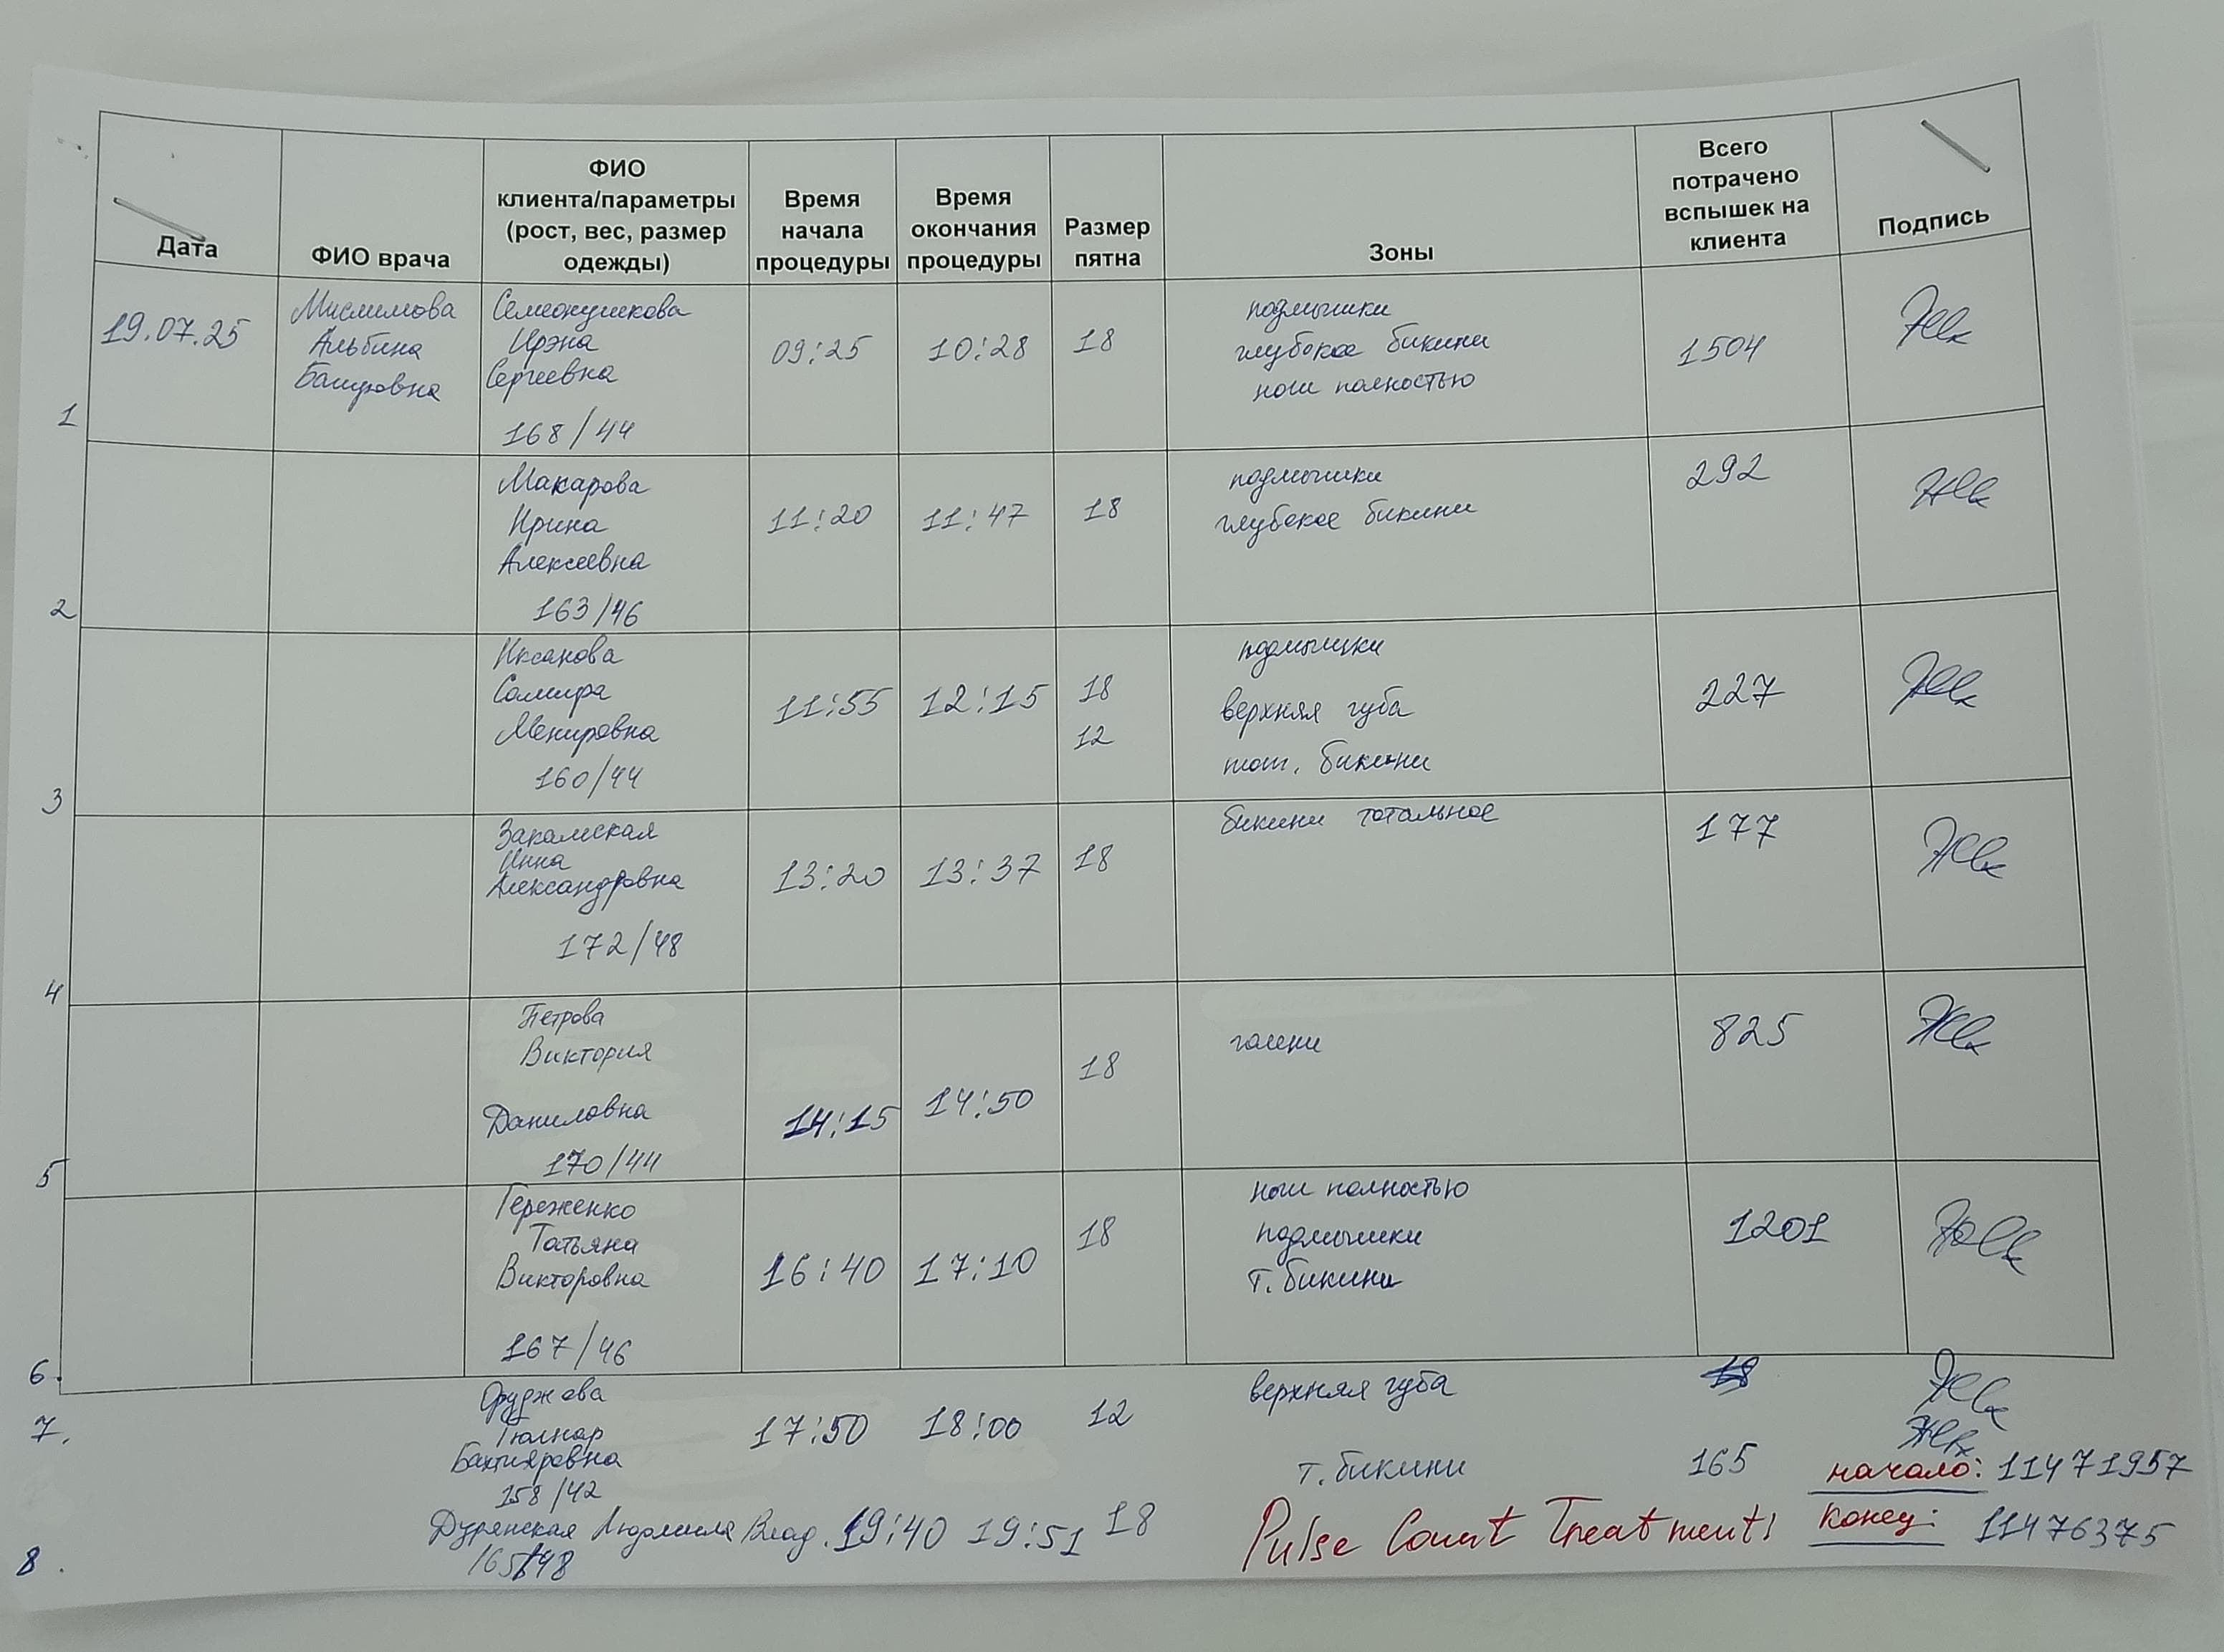 Дата
ФИО врача
ФИО
клиента/параметры
(рост, вес, размер
одежды)
Время
начала
процедуры
Время
окончания
процедуры
Размер
пятна
Зоны
Всего
потрачено
вспышек на
клиента
Подпись
1
19.07.25
Мислимова
Альбина
Башировна
Ирэна
Сергеевна
168/44
09:25
10:28
18
подмышки
глубокое бикини
ноги полностью
1504
2
Макарова
Ирина
Алексеевна
163/46
11:20
11:47
18
подмышки
глубокое бикини
292
3
Иксанова
Самира
160/44
11:55
12:15
18
12
подмышки
верхняя губа
тот. бикини
227
4
Закамская
Инна
Александровна
172/48
13:20
13:37
18
бикини тотальное
177
5
Петрова
Виктория
Даниловна
170/44
14:15
14:50
18
голени
825
6.
Гереженко
Татьяна
Викторовна
167/46
16:40
17:10
18
ноги полностью
подмышки
т. бикини
1201
7.
Оруджева
Гюлнар
Бахтияровна
158/42
17:50
18:00
12
верхняя губа
8.
Дурянская Людмила Влад. 19:40 19:51 18
т. бикини 165
Pulse Count Treatment:
начало: 11471957
конец: 11476375